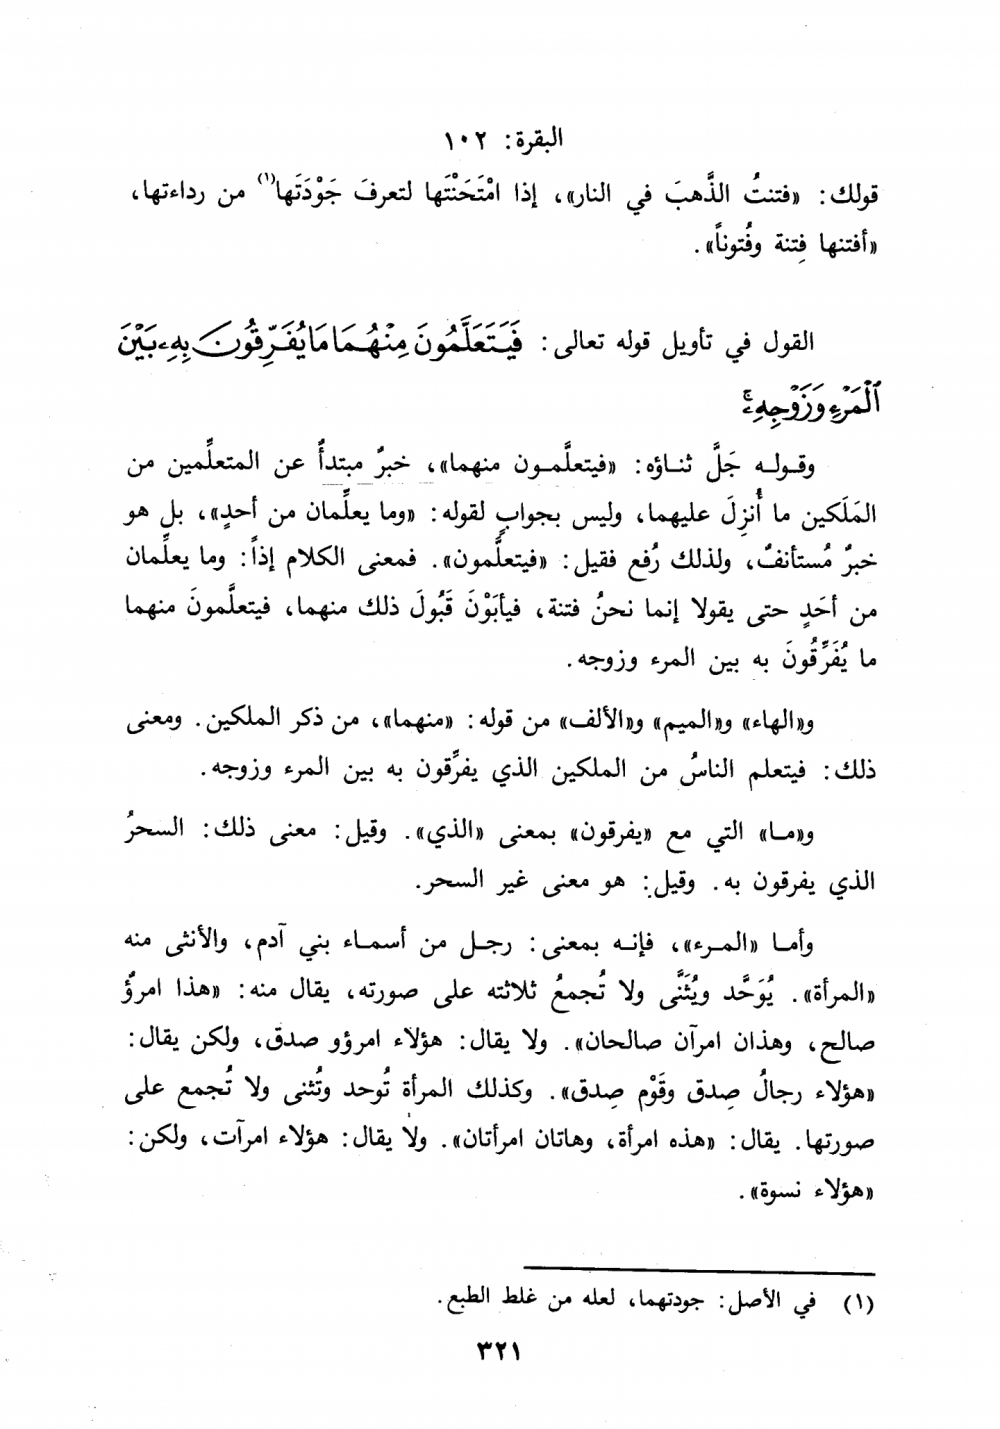 البقرة: ١٠٢
قولك: «فتنتُ الذَّهبَ في النار»، إذا امْتَحَنْتَها لتعرفَ جَوْدَتَها(١) من رداءتها،
«أفتنها فِتنة وفُتوناً».
القول في تأويل قوله تعالى: فَيَتَعَلَّمُونَ مِنْهُمَا مَا يُفَرِّقُونَ بِهِۦ بَيْنَ
ٱلْمَرْءِ وَزَوْجِهِۦۚ
وقولـه جَلَّ ثنـاؤه: «فيتعلَّمـون منهما»، خبرٌ مبتدأٌ عن المتعلِّمين من
المَلَكين ما أُنزِلَ عليهما، وليس بجوابٍ لقوله: «وما يعلِّمان من أحدٍ»، بل هو
خبرٌ مُستأنفٌ، ولذلك رُفع فقيل: «فيتعلَّمون». فمعنى الكلام إذاً: وما يعلِّمان
من أحَدٍ حتى يقولا إنما نحنُ فتنة، فيأبَوْنَ قَبُولَ ذلك منهما، فيتعلَّمونَ منهما
ما يُفَرِّقُونَ به بين المرء وزوجه.
و«الهاء» و«الميم» و«الألف» من قوله: «منهما»، من ذكر الملكين. ومعنى
ذلك: فيتعلم الناسُ من الملكين الذي يفرِّقون به بين المرء وزوجه.
و«مـا» التي مع «يفرقون» بمعنى «الذي». وقيل: معنى ذلك: السحرُ
الذي يفرقون به. وقيل: هو معنى غير السحر.
وأمـا «المـرء»، فإنـه بمعنى: رجـل من أسمـاء بني آدم، والأنثى منه
«المرأة». يُوَحَّد ويُثَنَّى ولا تُجمعُ ثلاثته على صورته، يقال منه: «هذا امرؤٌ
صالح، وهذان امرآن صالحان». ولا يقال: هؤلاء امرؤو صدق، ولكن يقال:
«هؤلاء رجالُ صِدق وقَوْم صِدق». وكذلك المرأة تُوحد وتُثنى ولا تُجمع على
صورتها. يقال: «هذه امرأة، وهاتان امرأتان». ولا يقال: هؤلاء امرآت، ولكن:
«هؤلاء نسوة».
(١) في الأصل: جودتهما، لعله من غلط الطبع.
٣٢١